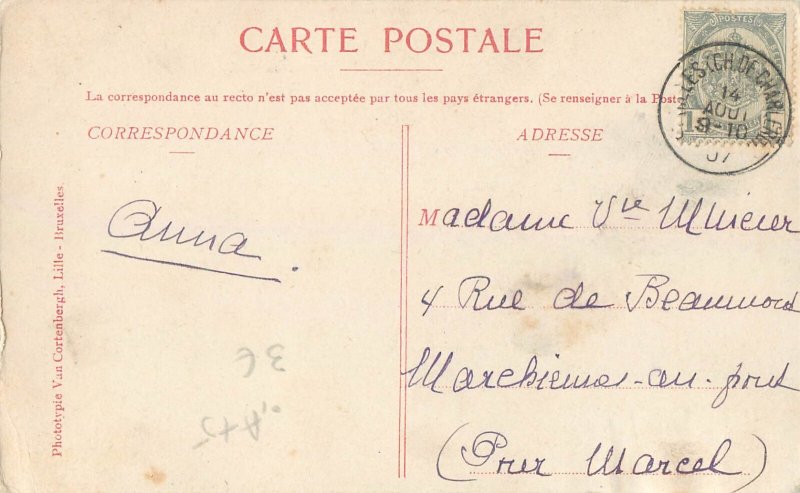 CARTE POSTALE
La correspondance au recto n'est pas acceptée par tous les pays étrangers. (Se renseigner à la Poste
CORRESPONDANCE
ADRESSE
POSTES
14
AOUT
9-10
07
Anna.
Madame Vve
4 Rue de Beaumont
Marchienne-au-pont
(Pour Marcel)
Phototypie Van Cortenbergh, Lille - Bruxelles.
3€